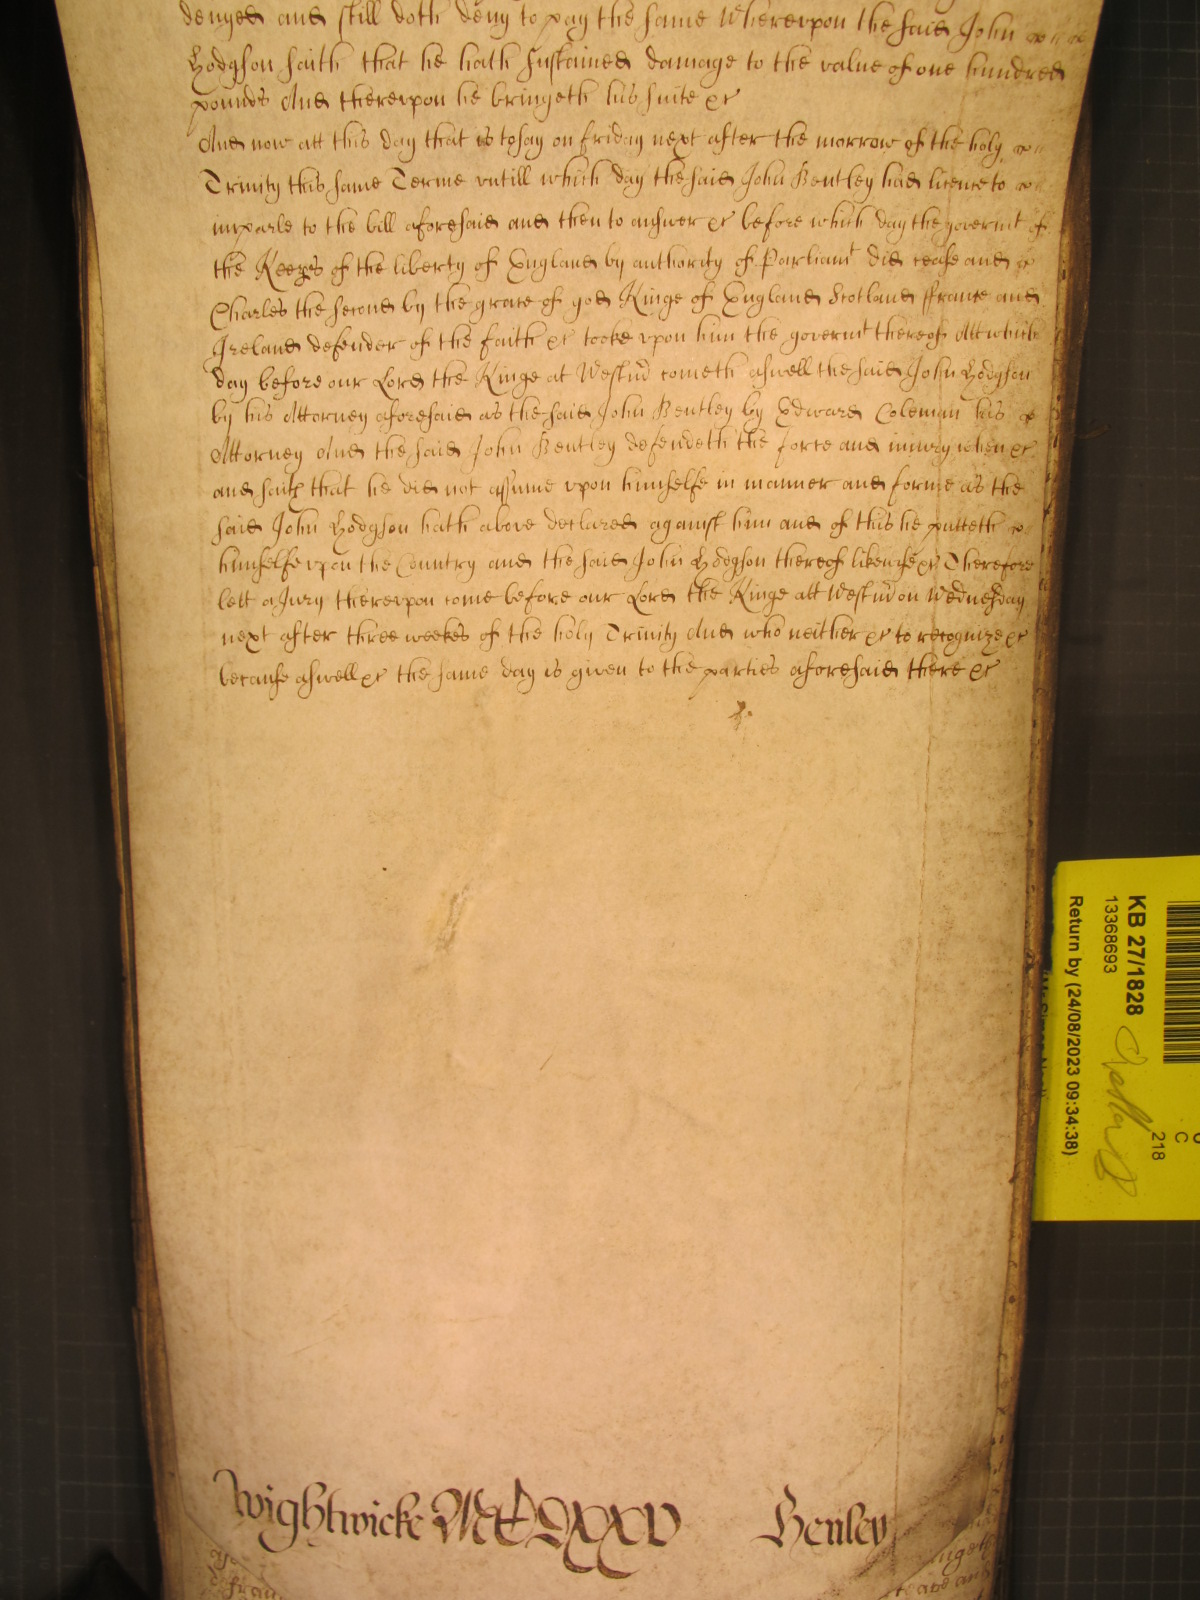 denyed and still doth deny to pay the same Wherevpon the said John
Hodgson saith that he hath sustained damage to the value of one hundred
pounds And therevpon he bringeth his suite &c
And now att this day that is to say on friday next after the morrow of the holy
Trinity this same Terme vntill which day the said John Bentley had licence to
imparle to the bill aforesaid and then to answer &c before which day the governmt of
the Keepers of the liberty of England by authority of Parliamt did cease and
Charles the second by the grace of god Kinge of England Scotland ffrance and
Ireland defender of the faith &c tooke vpon him the governmt thereof Att which
day before our Lord the Kinge at Westmr cometh aswell the said John Hodgson
by his Attorney aforesaid as the said John Bentley by Edward Coleman his
Attorney And the said John Bentley defendeth the force and iniury when &c
and saith that he did not assume vpon himselfe in manner and forme as the
said John Hodgson hath above declared against him and of this he putteth
himselfe vpon the Country and the said John Hodgson thereof likewise &c Therefore
lett a Jury therevpon come before our Lord the Kinge att Westmr on Wednesday
next after three weekes of the holy Trinity And who neither &c to recognize &c
because aswell &c the same day is given to the parties aforesaid there &c
Wightwicke MCLXXXV Henley
KB 27/1828
13368693
Return by (24/08/2023 09:34:38)
218
C